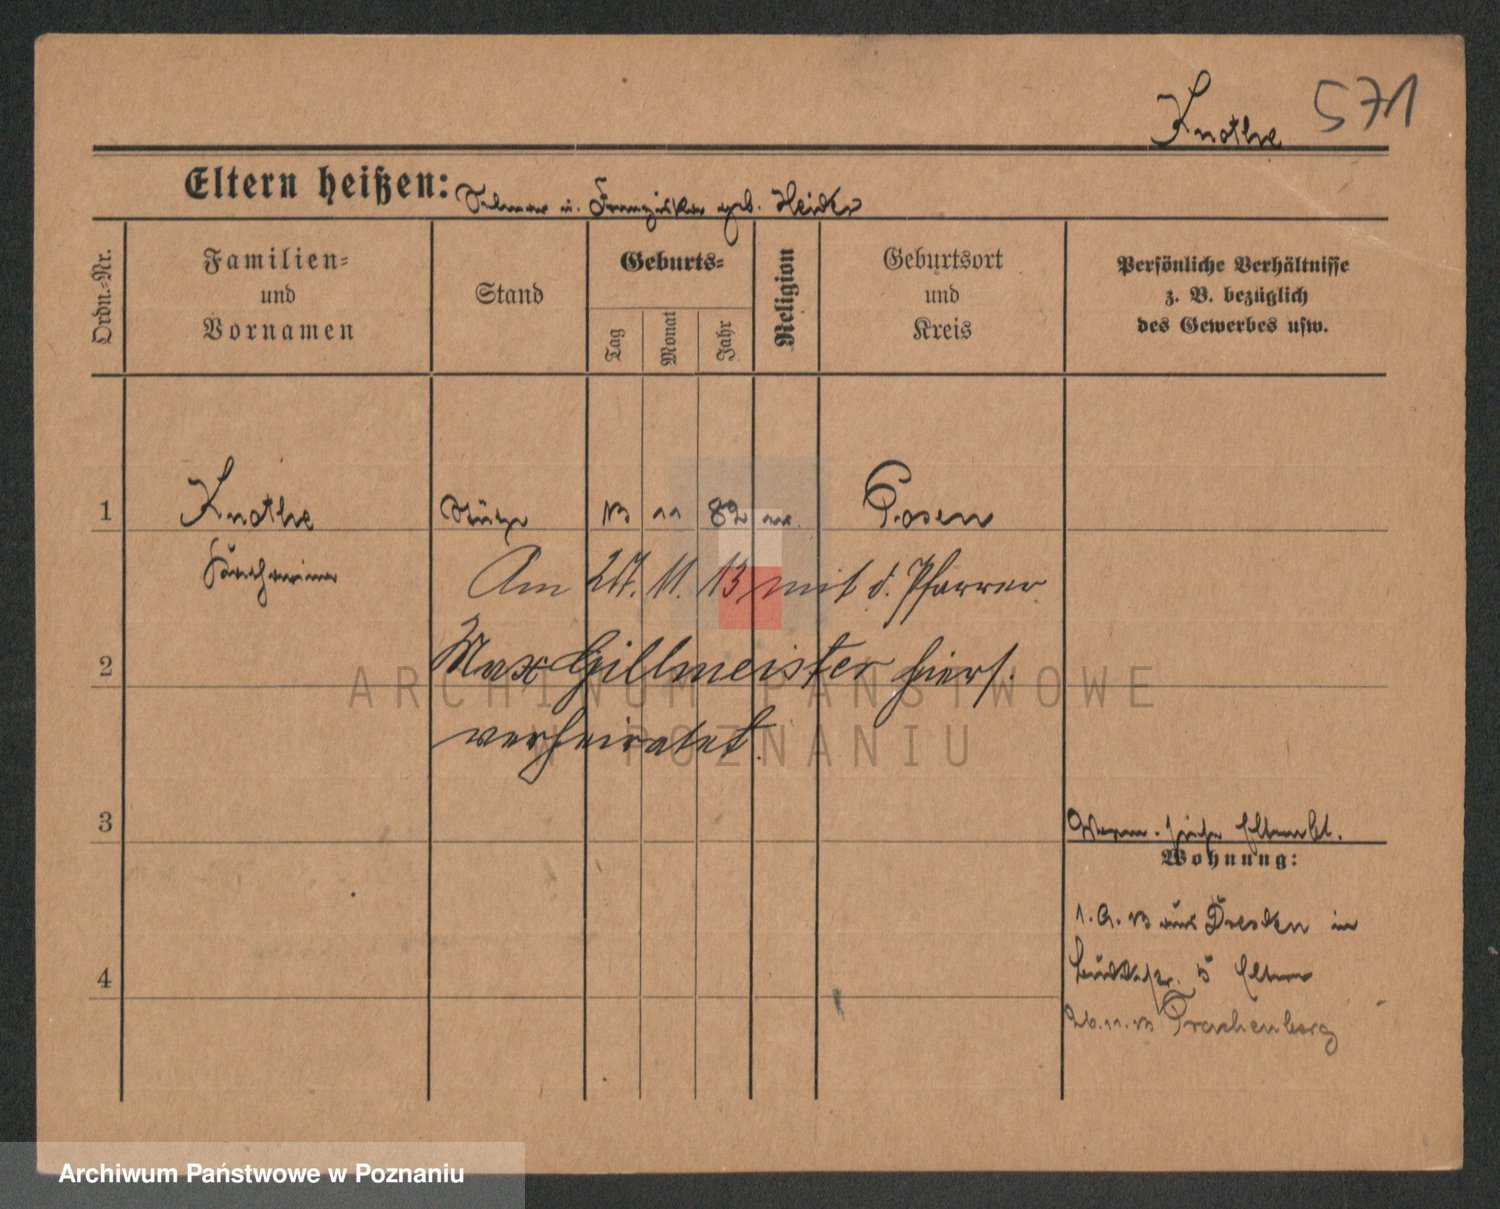 Knothe 571
Eltern heißen: u. Franziska geb. Heider
Ordn.-Nr.
Familien-
und
Vornamen
Stand
Geburts-
Tag
Monat
Jahr
Religion
Geburtsort
und
Kreis
Persönliche Verhältnisse
z. B. bezüglich
des Gewerbes usw.
1 Knothe Stütze 13 11 82 Posen
Am 11. 13 mit d. Pfarrer
2 Max Gillmeister hiers.
verheiratet.
3
Verm. siehe Elternbl.
Wohnung:
aus Dresden in
4
5 Eltern
26.11.13 Trachenberg
ARCHIWUM PAŃSTWOWE
W POZNANIU
Archiwum Państwowe w Poznaniu